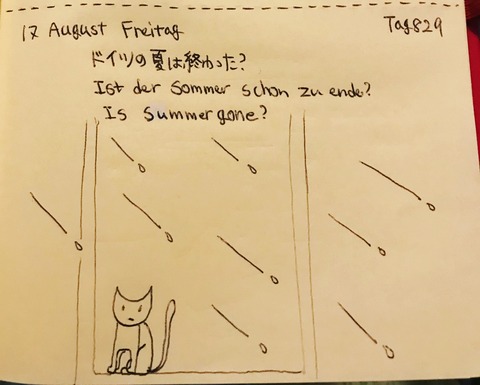 17 August Freitag
Tag829
ドイツの夏は終わった?
Ist der Sommer schon zu ende?
Is Summer gone?